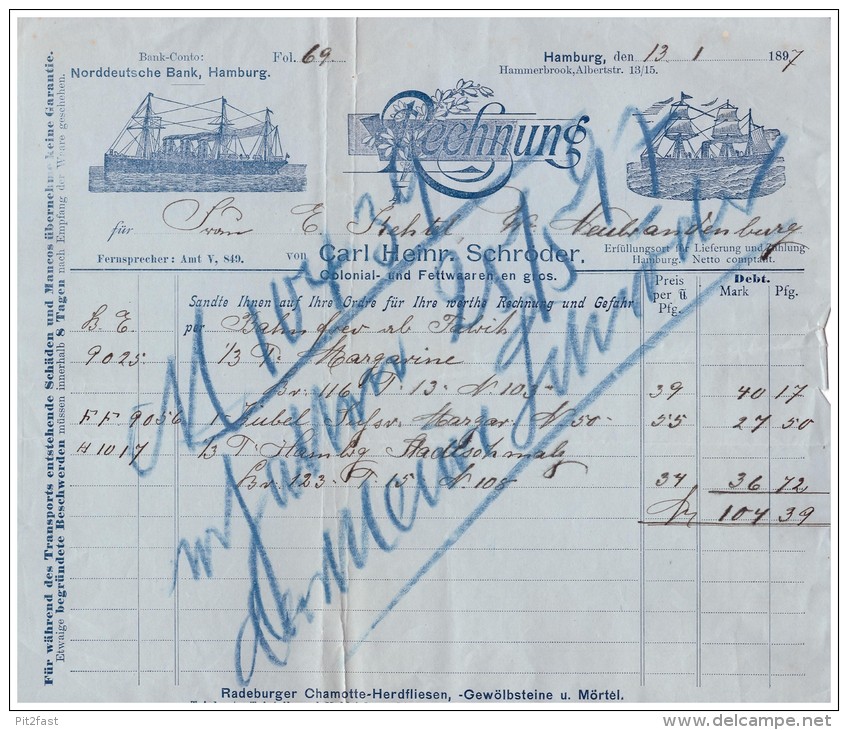 Bank-Conto:
Norddeutsche Bank, Hamburg.
Fol. 69
Hamburg, den 13. 1 1897
Hammerbrook, Albertstr. 13/15.
Rechnung
für Frau E. Neubrandenburg
Fernsprecher: Amt V, 849.
von Carl Heinr. Schröder,
Colonial- und Fettwaaren en gros.
Erfüllungsort für Lieferung und Zahlung
Hamburg. Netto comptant.
Sandte Ihnen auf Ihre Ordre für Ihre werthe Rechnung und Gefahr
Preis per ü Pfg.
Debt.
Mark Pfg.
B. E. per Bahn frei ab
9025 1/3 T. Margarine
Br. 116 T. 13 N. 103 39 40 17
FF 9056 1 Kübel Margar. N. 50 55 27 50
H 1017 1/3 T. Hambg Stadtschmalz
Br. 123 T. 15 N. 108 34 36 72
104 39
Für während des Transports entstehende Schäden und Mancos übernehme keine Garantie.
Etwaige begründete Beschwerden müssen innerhalb 8 Tagen nach Empfang der Waare geschehen.
M 104,39
Radeburger Chamotte-Herdfliesen, -Gewölbsteine u. Mörtel.
Pit2fast